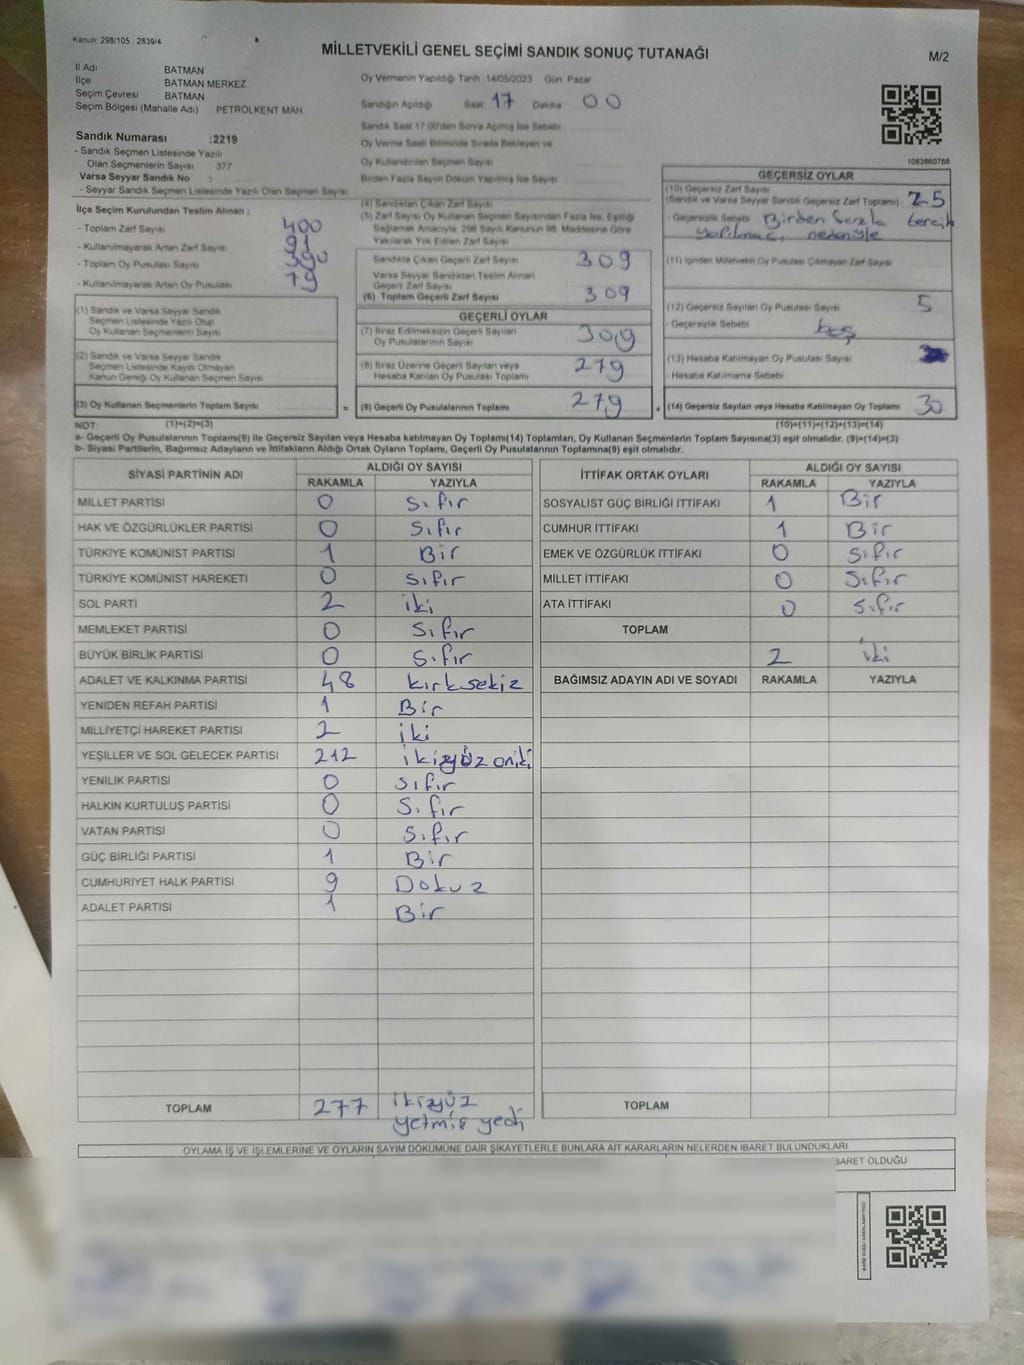 Kanun: 298/105, 2839/4
MİLLETVEKİLİ GENEL SEÇİMİ SANDIK SONUÇ TUTANAĞI
M/2
İl Adı BATMAN
İlçe BATMAN MERKEZ
Seçim Çevresi BATMAN
Seçim Bölgesi (Mahalle Adı) : PETROLKENT MAH.
Oy Vermenin Yapıldığı Tarih :14/05/2023 Gün: Pazar
Sandığın Açıldığı Saat 17 Dakika 00
Sandık Saat 17.00'den Sonra Açılmış İse Sebebi
Oy Verme Saati Bitiminde Sırada Bekleyen ve
Oy Kullandırılan Seçmen Sayısı
Birden Fazla Sayım Döküm Yapılmış İse Sayısı
1083860788
Sandık Numarası :2219
- Sandık Seçmen Listesinde Yazılı
Olan Seçmenlerin Sayısı : 377
Varsa Seyyar Sandık No :
- Seyyar Sandık Seçmen Listesinde Yazılı Olan Seçmen Sayısı:
İlçe Seçim Kurulundan Teslim Alınan :
- Toplam Zarf Sayısı 400
- Kullanılmayarak Artan Zarf Sayısı 91
- Toplam Oy Pusulası Sayısı 390
- Kullanılmayarak Artan Oy Pusulası 79
(1) Sandık ve Varsa Seyyar Sandık
Seçmen Listesinde Yazılı Olup
Oy Kullanan Seçmenlerin Sayısı
(2) Sandık ve Varsa Seyyar Sandık
Seçmen Listesinde Kayıtlı Olmayan
Kanun Gereği Oy Kullanan Seçmen Sayısı
(3) Oy Kullanan Seçmenlerin Toplam Sayısı =
(4) Sandıktan Çıkan Zarf Sayısı
(5) Zarf Sayısı Oy Kullanan Seçmen Sayısından Fazla İse, Eşitliği
Sağlamak Amacıyla, 298 Sayılı Kanunun 98. Maddesine Göre
Yakılarak Yok Edilen Zarf Sayısı
Sandıkta Çıkan Geçerli Zarf Sayısı 309
Varsa Seyyar Sandıktan Teslim Alınan
Geçerli Zarf Sayısı
(6) Toplam Geçerli Zarf Sayısı 309
GEÇERLİ OYLAR
(7) İtiraz Edilmeksizin Geçerli Sayılan
Oy Pusulalarının Sayısı 309
(8) İtiraz Üzerine Geçerli Sayılan veya
Hesaba Katılan Oy Pusulası Toplamı 279
(9) Geçerli Oy Pusulalarının Toplamı 279 +
GEÇERSİZ OYLAR
(10) Geçersiz Zarf Sayısı
(Sandık ve Varsa Seyyar Sandık Geçersiz Zarf Toplamı) 25
- Geçersizlik Sebebi Birden fazla tercih
yapılması nedeniyle
(11) İçinden Milletvekili Oy Pusulası Çıkmayan Zarf Sayısı
(12) Geçersiz Sayılan Oy Pusulası Sayısı 5
- Geçersizlik Sebebi boş
(13) Hesaba Katılmayan Oy Pusulası Sayısı
- Hesaba Katılmama Sebebi
(14) Geçersiz Sayılan veya Hesaba Katılmayan Oy Toplamı 30
NOT: (1)+(2)=(3) (10)+(11)+(12)+(13)=(14)
a- Geçerli Oy Pusulalarının Toplamı(9) ile Geçersiz Sayılan veya Hesaba katılmayan Oy Toplamı(14) Toplamları, Oy Kullanan Seçmenlerin Toplam Sayısına(3) eşit olmalıdır. (9)+(14)=(3)
b- Siyasi Partilerin, Bağımsız Adayların ve İttifakların Aldığı Ortak Oyların Toplamı, Geçerli Oy Pusulalarının Toplamına(9) eşit olmalıdır.
SİYASİ PARTİNİN ADI ALDIĞI OY SAYISI
RAKAMLA YAZIYLA
MİLLET PARTİSİ 0 Sıfır
HAK VE ÖZGÜRLÜKLER PARTİSİ 0 Sıfır
TÜRKİYE KOMÜNİST PARTİSİ 1 Bir
TÜRKİYE KOMÜNİST HAREKETİ 0 Sıfır
SOL PARTİ 2 iki
MEMLEKET PARTİSİ 0 Sıfır
BÜYÜK BİRLİK PARTİSİ 0 Sıfır
ADALET VE KALKINMA PARTİSİ 48 kırksekiz
YENİDEN REFAH PARTİSİ 1 Bir
MİLLİYETÇİ HAREKET PARTİSİ 2 iki
YEŞİLLER VE SOL GELECEK PARTİSİ 212 ikiyüz oniki
YENİLİK PARTİSİ 0 Sıfır
HALKIN KURTULUŞ PARTİSİ 0 Sıfır
VATAN PARTİSİ 0 Sıfır
GÜÇ BİRLİĞİ PARTİSİ 1 Bir
CUMHURİYET HALK PARTİSİ 9 Dokuz
ADALET PARTİSİ 1 Bir
TOPLAM 277 ikiyüz
yetmiş yedi
İTTİFAK ORTAK OYLARI ALDIĞI OY SAYISI
RAKAMLA YAZIYLA
SOSYALİST GÜÇ BİRLİĞİ İTTİFAKI 1 Bir
CUMHUR İTTİFAKI 1 Bir
EMEK VE ÖZGÜRLÜK İTTİFAKI 0 Sıfır
MİLLET İTTİFAKI 0 Sıfır
ATA İTTİFAKI 0 Sıfır
TOPLAM
2 iki
BAĞIMSIZ ADAYIN ADI VE SOYADI RAKAMLA YAZIYLA
TOPLAM
OYLAMA İŞ VE İŞLEMLERİNE VE OYLARIN SAYIM DÖKÜMÜNE DAİR ŞİKAYETLERLE BUNLARA AİT KARARLARIN NELERDEN İBARET BULUNDUKLARI
BARET OLDUĞU